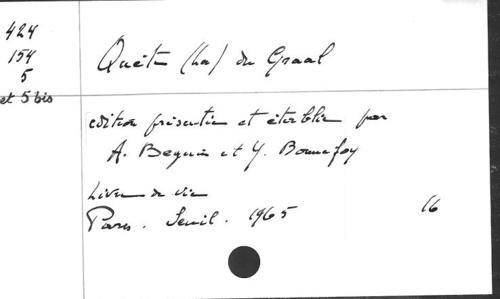 424
154
5
et 5 bis
Quête (La) du Graal
edition présentée et établie par
A. Beguin et Y. Bonnefoy
Livre de vie
Paris. Seuil. 1965
16